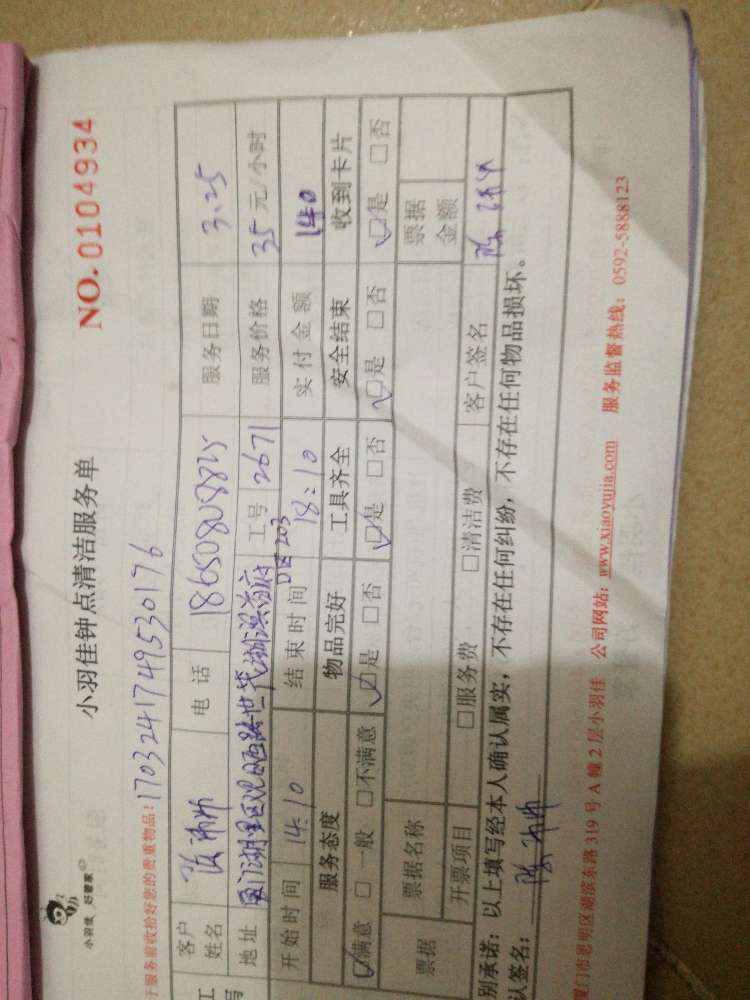 小羽佳 好管家
小羽佳钟点清洁服务单
NO. 0104934
于服务前收拾好您的贵重物品: 17032417495 30176
客户姓名 电话 18650808825 服务日期 3.25
地址 工号 2671 服务价格 35 元/小时
D区203
开始时间 14:10 结束时间 18:10 实付金额 140
服务态度 物品完好 工具齐全 安全结束 收到卡片
☑满意 □一般 □不满意 ☑是 □否 ☑是 □否 ☑是 □否 ☑是 □否
票据 票据名称 票据金额
开票项目 □服务费 □清洁费 客户签名
别承诺:以上填写经本人确认属实,不存在任何纠纷,不存在任何物品损坏。
认签名:
厦门市思明区湖滨东路 319 号 A 幢 2 层小羽佳 公司网站: www.xiaoyujia.com 服务监督热线: 0592-5888123